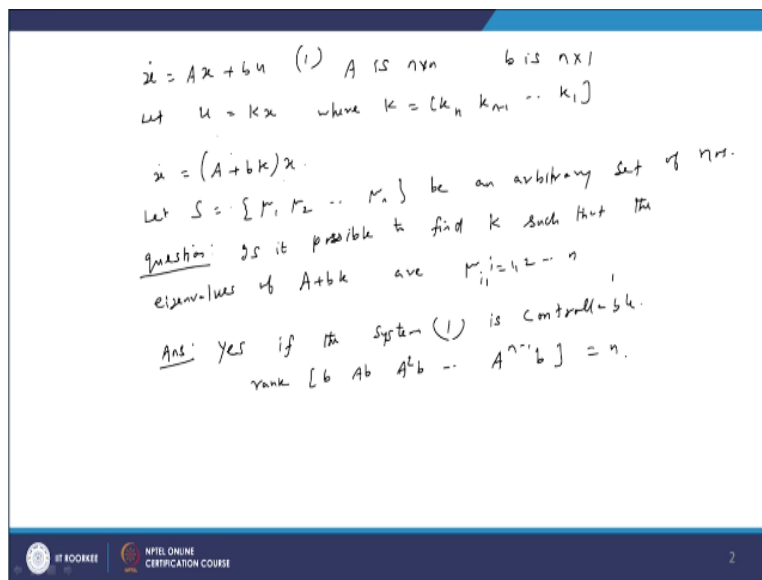 ẋ = Ax + bu (1) A is n×n b is n×1
Let u = kx where k = [kₙ kₙ₋₁ .. k₁]
ẋ = (A + bk)x.
Let S = {μ₁ μ₂ .. μₙ} be an arbitrary set of nos.
question: Is it possible to find k such that the
eigenvalues of A+bk are μᵢ, i=1,2 -- n
Ans: Yes if the system (1) is controllable.
rank [b Ab A²b -- Aⁿ⁻¹b] = n.
IIT ROORKEE
NPTEL ONLINE
CERTIFICATION COURSE
2